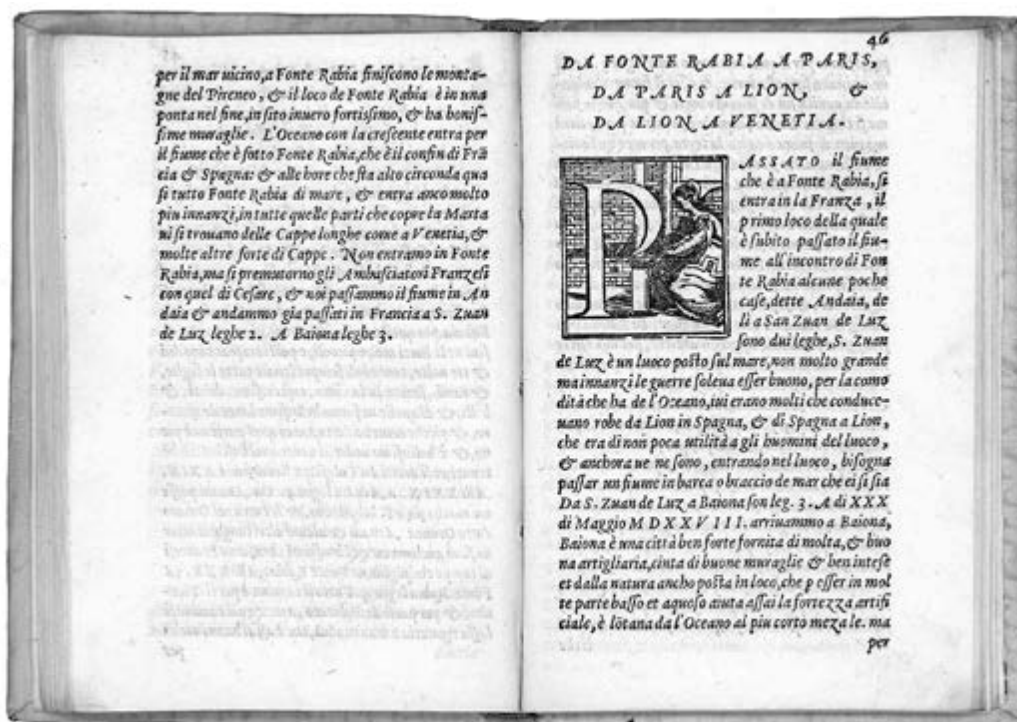 per il mar uicino, a Fonte Rabia finiſcono le monta-
gne del Pireneo, & il loco de Fonte Rabia è in una
ponta nel fine, in ſito inuero fortiſsimo, & ha boniſ-
ſime muraglie. L'Oceano con la creſcente entra per
il fiume che è ſotto Fonte Rabia, che è il confin di Frã
cia & Spagna: & alle hore che ſta alto circonda qua
ſi tutto Fonte Rabia di mare, & entra anco molto
piu innanzi, in tutte quelle parti che copre la Marta
ui ſi trouano delle Cappe longhe come a Venetia, &
molte altre ſorte di Cappe. Non entramo in Fonte
Rabia, ma ſi premutorno gli Ambaſciatori Franzeſi
con quel di Ceſare, & noi paſſammo il fiume in An
daia & andammo gia paſſati in Francia a S. Zuan
de Luz leghe 2. A Baiona leghe 3.
46
DA FONTE RABIA A PARIS,
DA PARIS A LION, &
DA LION A VENETIA.
PASSATO il fiume
che è a Fonte Rabia, ſi
entra in la Franza, il
primo loco della quale
è ſubito paſſato il fiu-
me all'incontro di Fon
te Rabia alcune poche
caſe, dette Andaia, de
li a San Zuan de Luz
ſono dui leghe, S. Zuan
de Luz è un luoco poſto ſul mare, non molto grande
ma innanzi le guerre ſoleua eſſer buono, per la como
dità che ha de l'Oceano, iui erano molti che conduce-
uano robe da Lion in Spagna, & di Spagna a Lion,
che era di non poca utilità a gli huomini del luoco,
& anchora ue ne ſono, entrando nel luoco, biſogna
paſſar un fiume in barca o braccio de mar che ei ſi ſia
Da S. Zuan de Luz a Baiona ſon leg. 3. A di XXX
di Maggio M D X X V I I I. arriuammo a Baiona,
Baiona è una città ben forte fornita di molta, & buo
na artigliaria, cinta di buone muraglie & ben inteſe
et dalla natura ancho poſta in loco, che p eſſer in mol
te parte baſſo et aquoſo aiuta aſſai la fortezza artifi
ciale, è lõtana da l'Oceano al piu corto meza le. ma
per